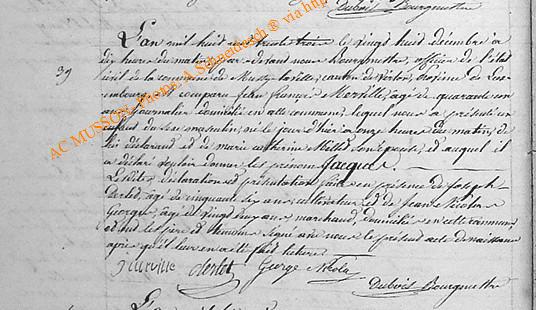 Dubois Bourgmestre
L'an mil huit cent trente trois le vingt huit décembre à
39
dix heures du matin, par devant nous Bourgmestre, officier de l'état
civil de la commune de Mussy-la-ville, canton de Virton, province de Luxem-
bourg est comparu Jean François Merville, âgé de quarante un
ans, journalier domicilié en cette commune, lequel nous a présenté un
enfant du sexe masculin, né le jour d'hier à onze heures du matin, de
lui déclarant et de marie catherine Millet son épouse, et auquel il
a déclaré vouloir donner les prénoms Jacques
Lesdites déclaration et présentation faites en présence de Joseph
Derlet, âgé de cinquante six ans, cultivateur et de Jean Nicolas
George, âgé de vingt huit ans marchand, domiciliés en cette commune
et ont les père et témoins signé avec nous le présent acte de naissance
après qu'il leur en a été fait lecture
merville derlet George Nicolas
Dubois Bourgmestre
AC MUSSON - Photos. A. Schneidesch ® via http